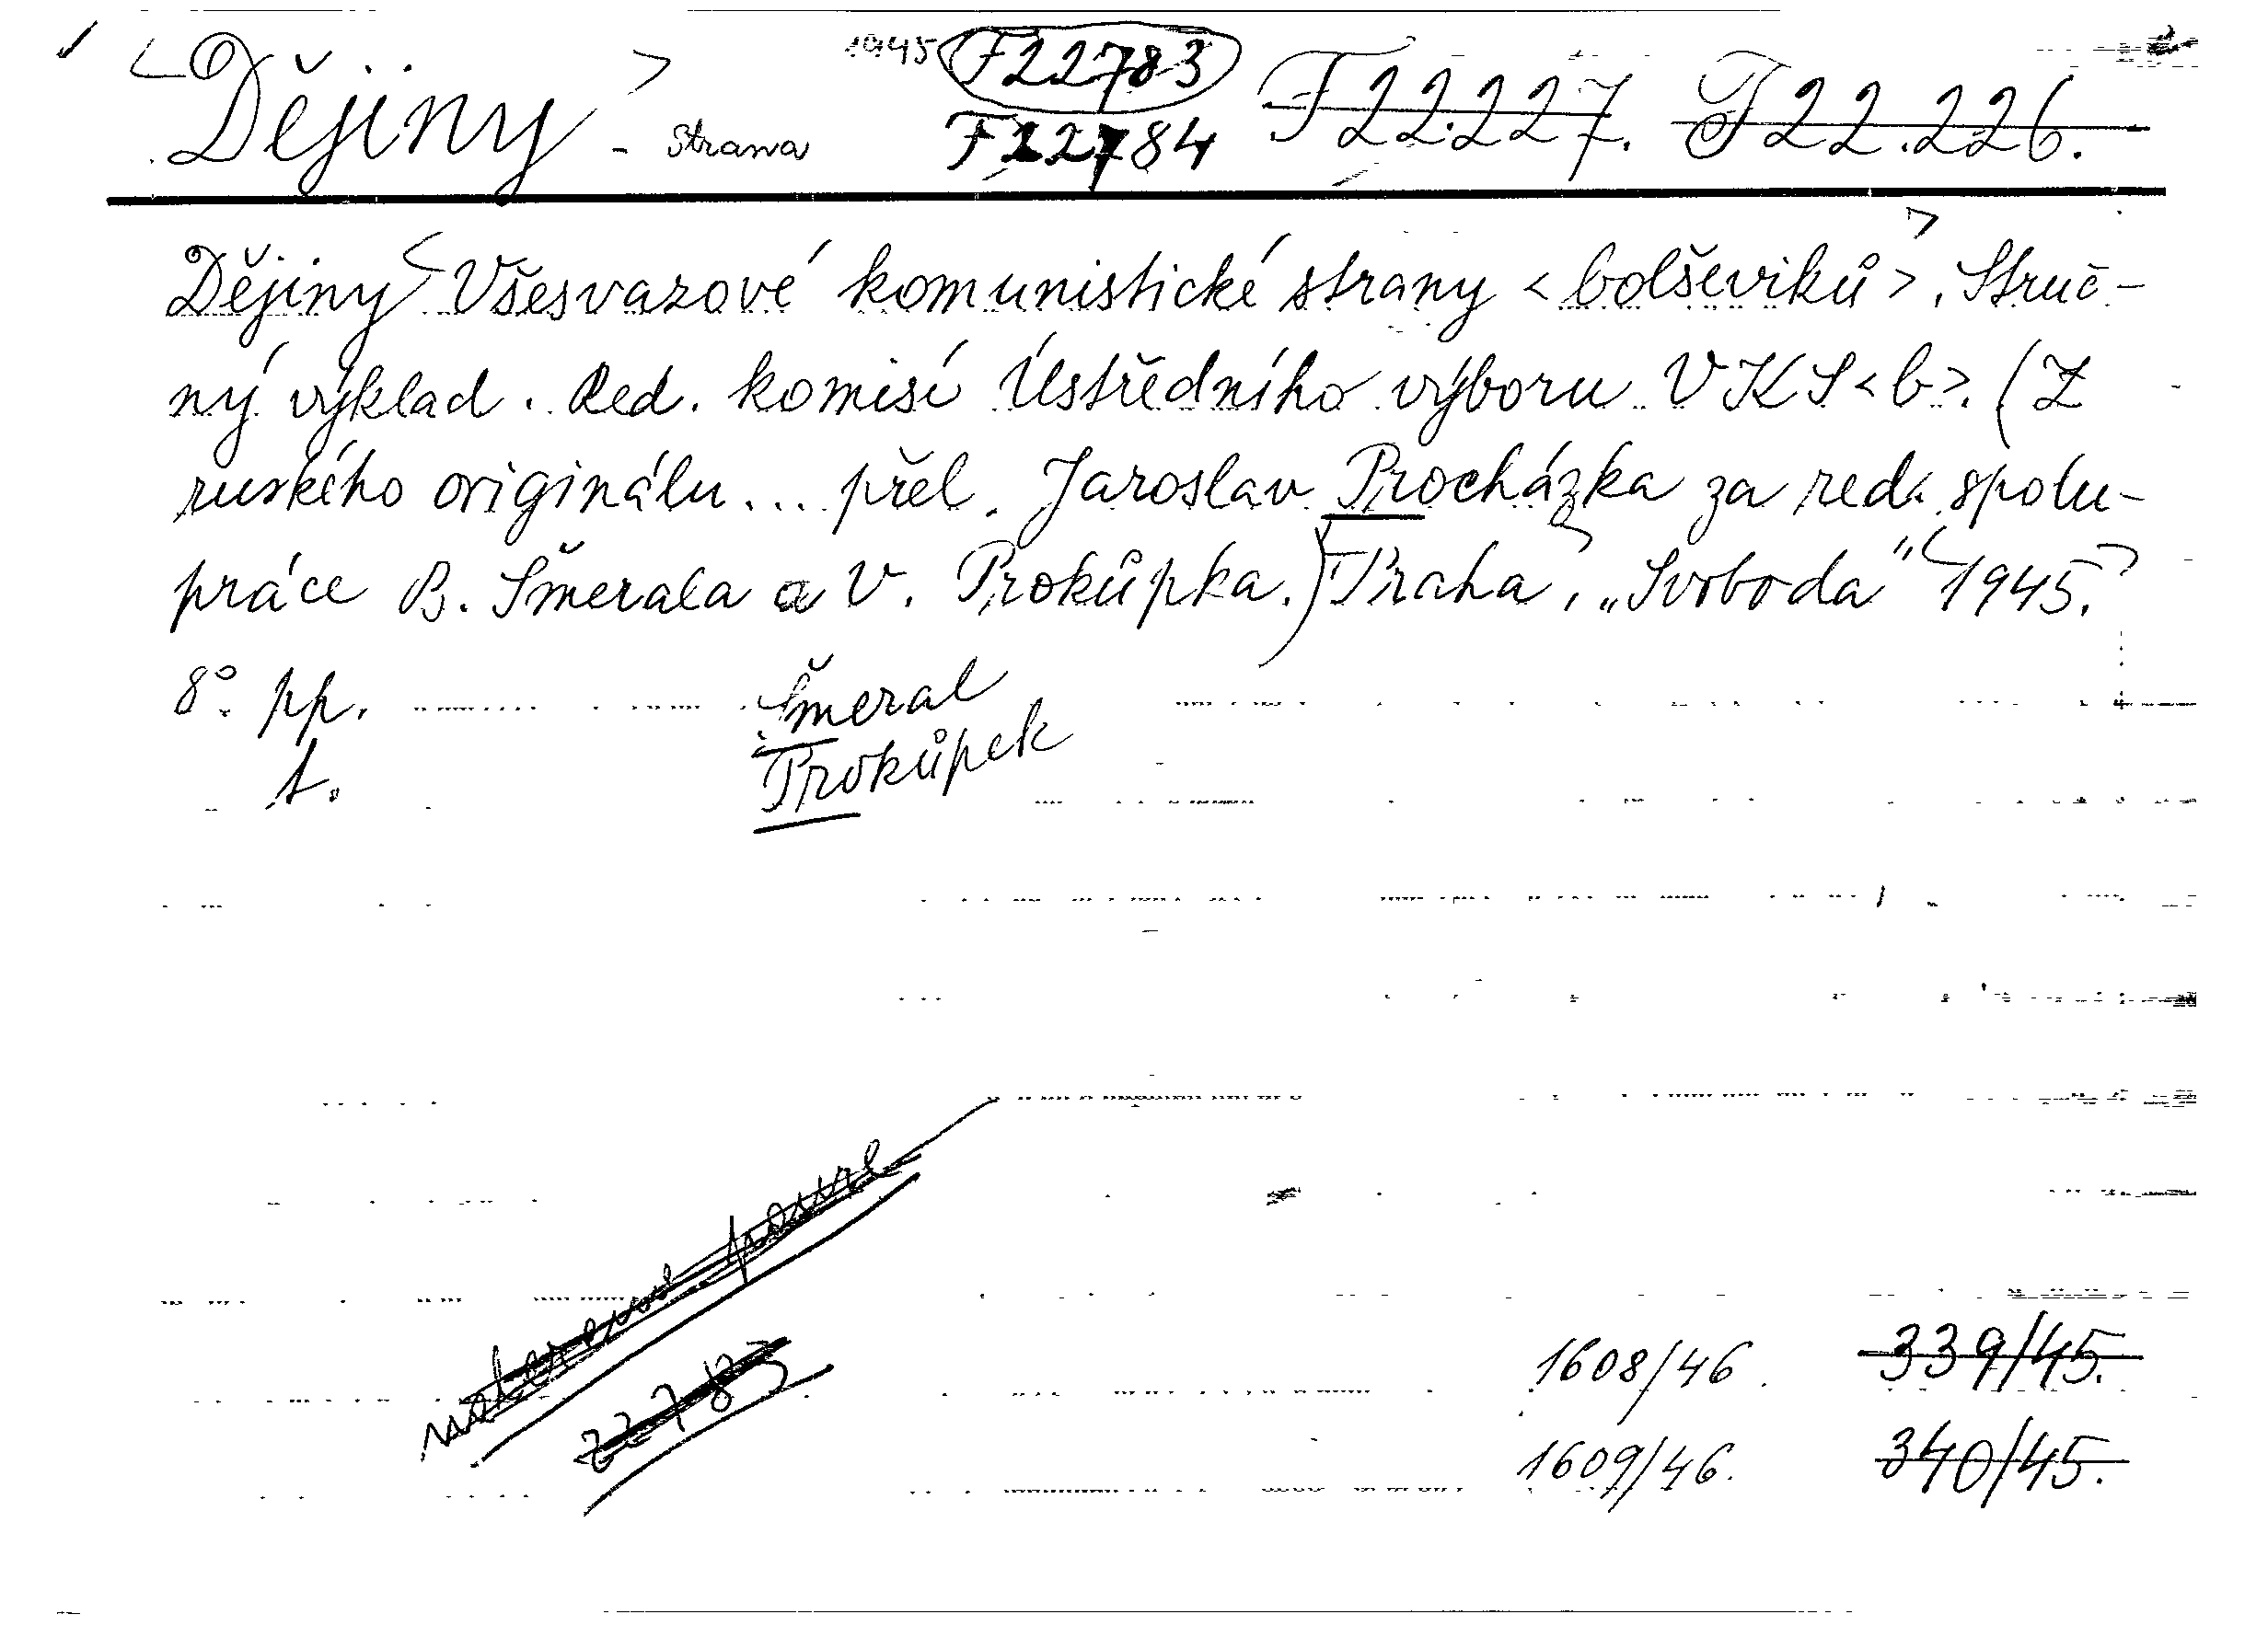 <Dějiny> - strana 1945 F22783 F22.227. F22.226.
F22784
Dějiny <Všesvazové komunistické strany <bolševiků>>, Struč-
ný výklad. Red. komisí Ústředního výboru VKS<b>. (Z
ruského originálu... přel. Jaroslav Procházka za red. spolu-
práce B. Šmerala a V. Prokůpka.) Praha, „Svoboda" <1945.>
8°. pp. Šmeral
t. Prokůpek
22783
1608/46. 339/45.
1609/46. 340/45.